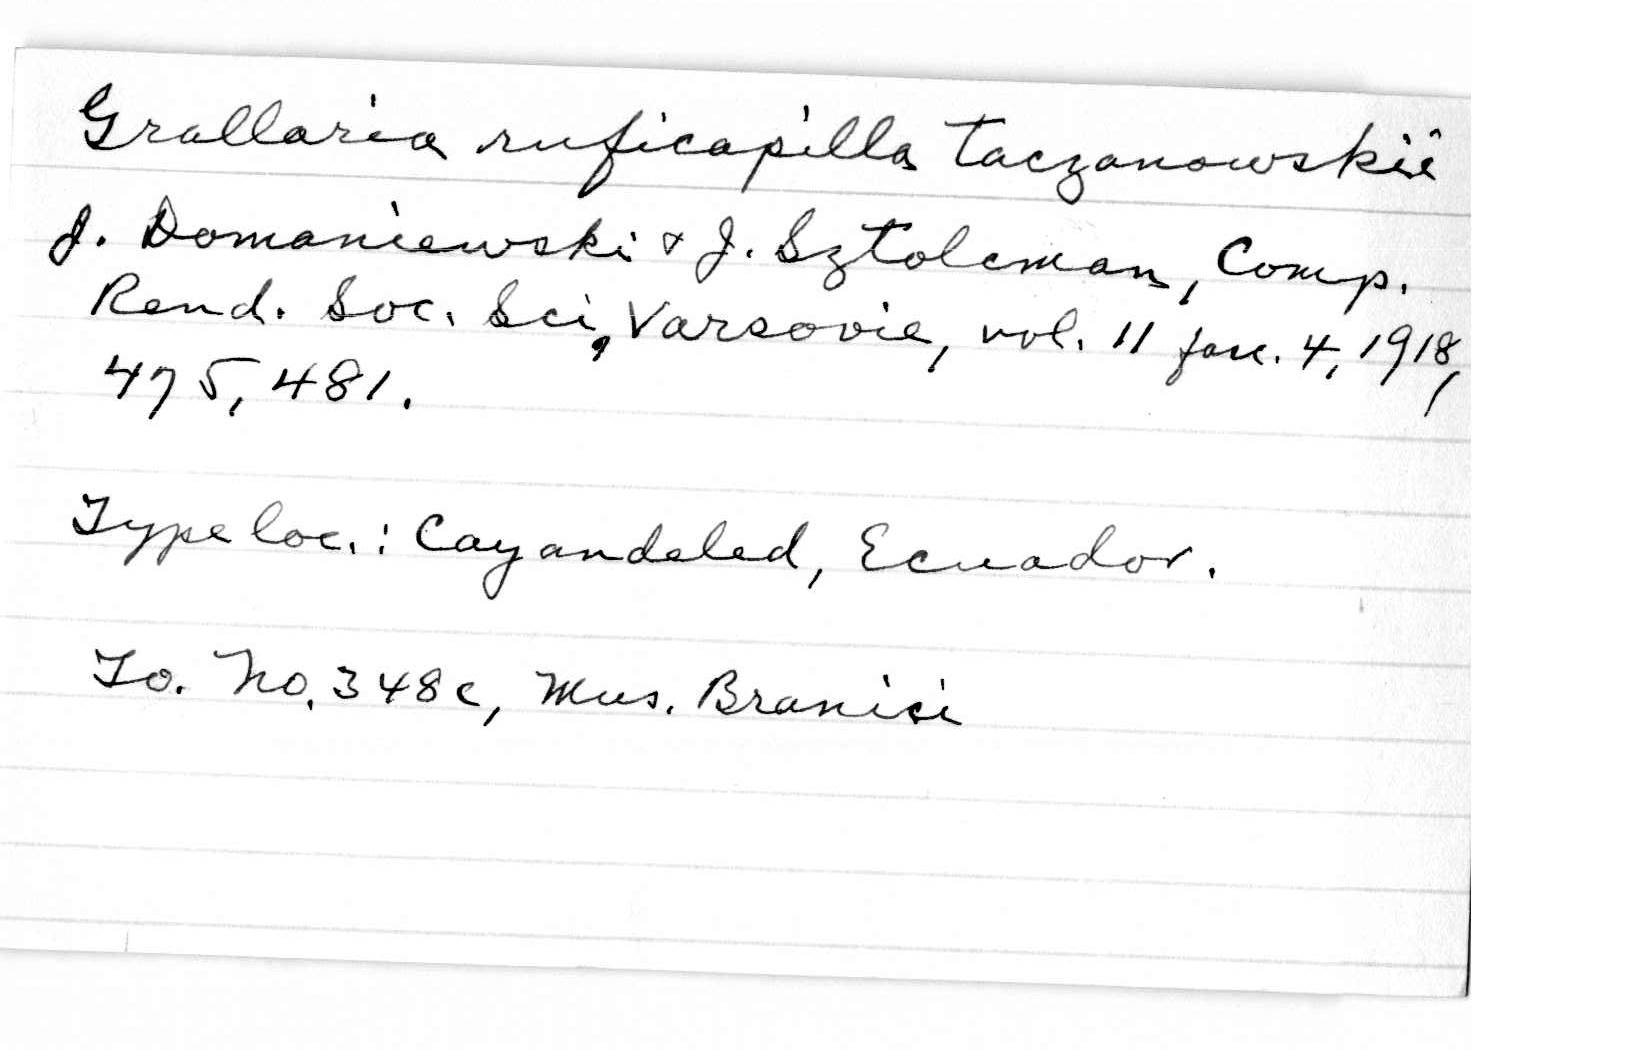 Grallaria ruficapilla taczanowskii
J. Domaniewski & J. Sztolcman, Comp.
Rend. Soc. Sci, Varsovie, vol. 11 fasc. 4, 1918,
475, 481.
Type loc.: Cayandeled, Ecuador.
To. No. 348c, Mus. Branici